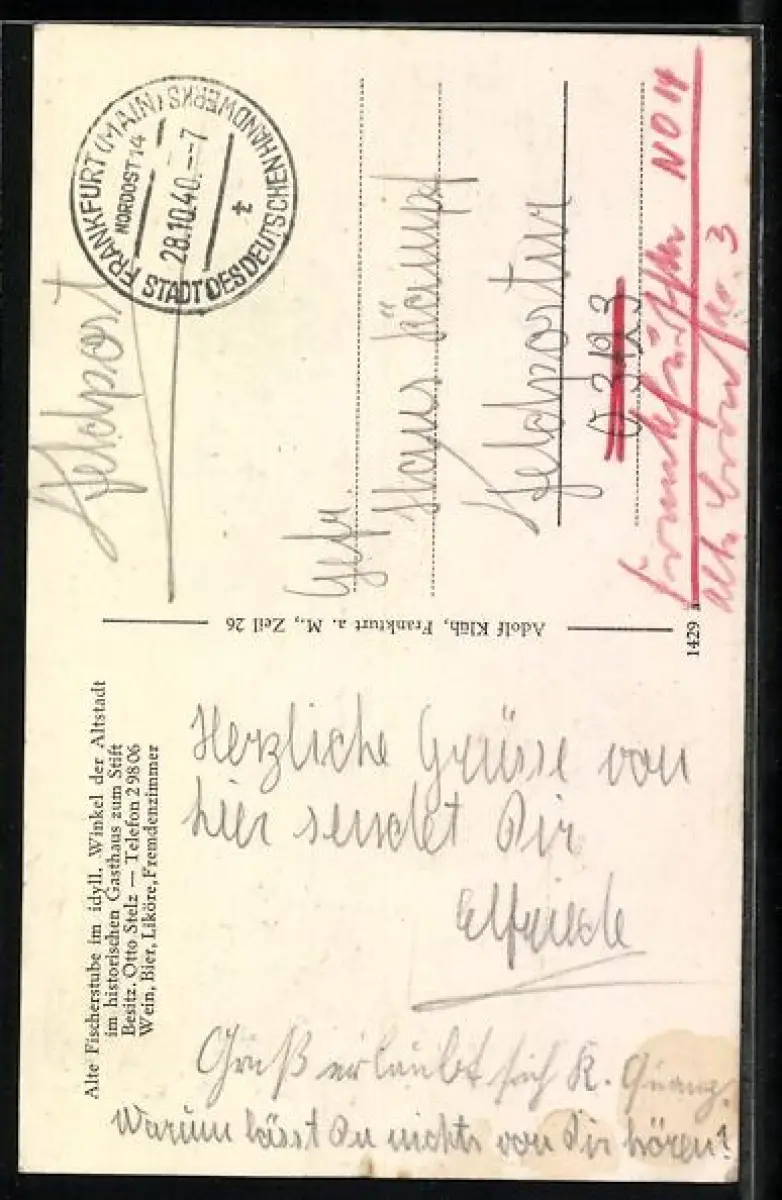 Alte Fischerstube im idyll. Winkel der Altstadt
im historischen Gasthaus zum Stift
Besitz. Otto Stelz — Telefon 29806
Wein, Bier, Liköre, Fremdenzimmer
Herzliche Grüsse von
hier sendet Dir
Elfriede
Gruß erlaubt sich K.
Warum lässt Du nichts von Dir hören?
Adolf Klüh, Frankfurt a. M., Zeil 26
1429
Feldpost
FRANKFURT (MAIN)
NORDOST 14
28.10.40.--7
t
STADT DES DEUTSCHEN HANDWERKS
Gefr.
Hans
Feldpostnr
03123
Frankfurt NO 14
3